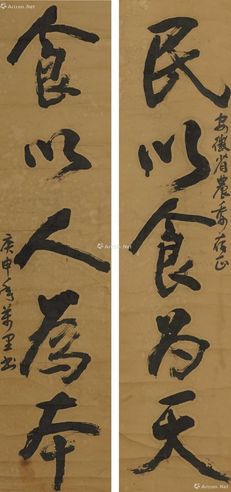 民以食为天
安徽省農委存正
食以人為本
庚申年萬里书
Artron.Net
Artron.Net